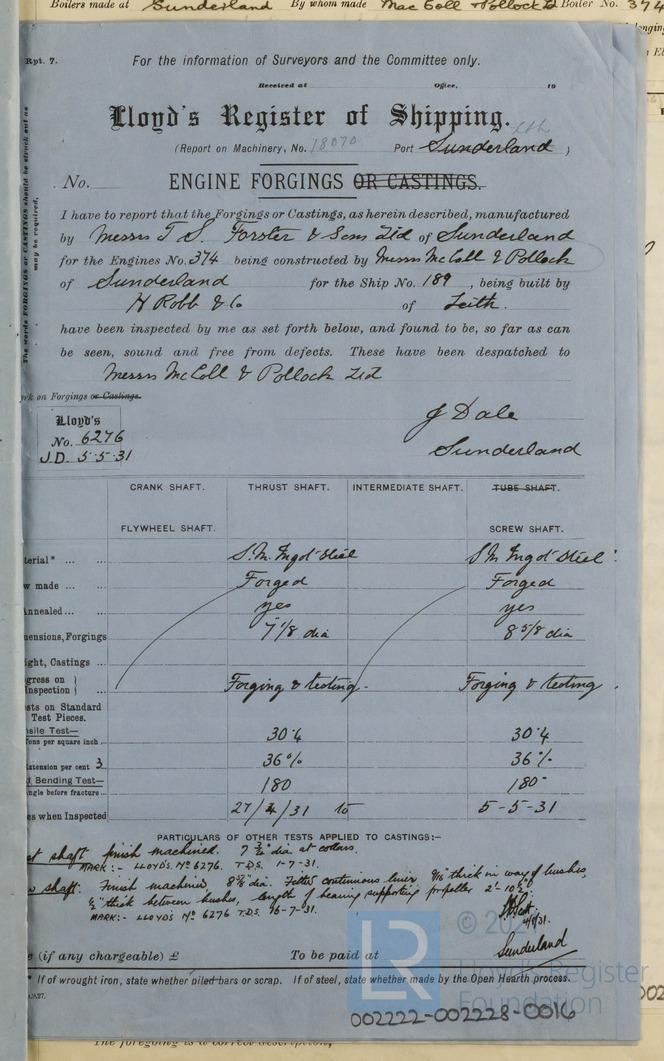 Boilers made at Sunderland By whom made MacColl & Pollock Ld Boiler No. 374
Rpt. 7.
For the information of Surveyors and the Committee only.
Received at Office, 19
Lloyd's Register of Shipping.
(Report on Machinery, No. 18070 Port Sunderland Lth )
No. ENGINE FORGINGS OR CASTINGS.
The words FORGINGS or CASTINGS should be struck out as
may be required.
I have to report that the Forgings or Castings, as herein described, manufactured
by Messrs T. S. Forster & Sons Ltd of Sunderland
for the Engines No. 374 being constructed by Messrs McColl & Pollock
of Sunderland for the Ship No. 189, being built by
H Robb & Co of Leith.
have been inspected by me as set forth below, and found to be, so far as can
be seen, sound and free from defects. These have been despatched to
Messrs McColl & Pollock Ltd
rk on Forgings or Castings.
Lloyd's
No. 6276
J.D. 5-5-31
J Dale
Sunderland
CRANK SHAFT. THRUST SHAFT. INTERMEDIATE SHAFT. TUBE SHAFT.
FLYWHEEL SHAFT. SCREW SHAFT.
terial* ... ... S.M. Ingot Steel S M Ingot Steel
w made ... ... Forged Forged
Annealed ... ... yes yes
ensions, Forgings 7 1/8 dia 8 5/8 dia
ight, Castings ...
gress on
Inspection } ... Forging & testing. Forging & testing.
sts on Standard
Test Pieces.
sile Test—
ons per square inch ... 30.4 30.4
xtension per cent 3 36% 36%
Bending Test—
ngle before fracture ... 180 180°
es when Inspected 27/4/31 to 5-5-31
PARTICULARS OF OTHER TESTS APPLIED TO CASTINGS:—
st shaft finish machined. 7 3/4" dia at collars.
MARK:- LLOYD'S No 6276. T.D.S. 1-7-31.
w shaft. Finish machined, dia. Fitted continuous liner thick in way of bushes,
1/2" thick between bushes, length of bearing supporting propeller
MARK:- LLOYD'S No 6276 T.D.S. 16-7-31.
4/8/31.
Sunderland
e (if any chargeable) £ To be paid at
* If of wrought iron, state whether piled bars or scrap. If of steel, state whether made by the Open Hearth process.
LR
Lloyd's Register
Foundation
002222-002228-0016
The foregoing is a correct description,